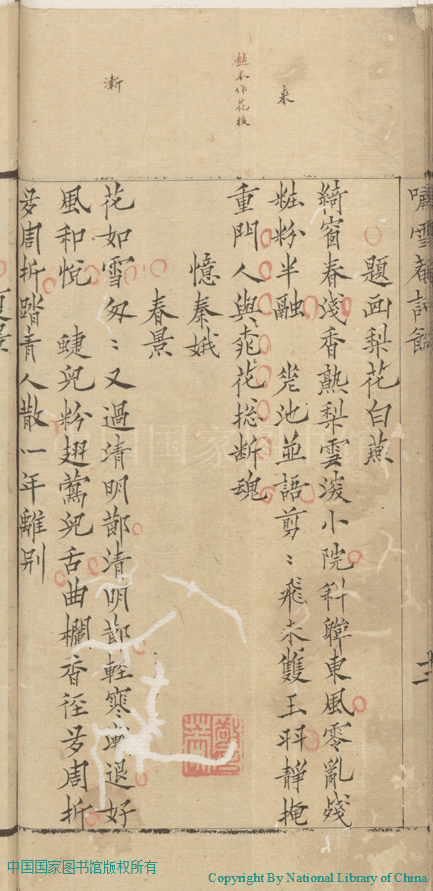 來
漸
題画梨花白燕
綺窗春淺香熱梨雲淡小院斜聯東風零亂殘
粧粉半融　差池並語剪〻飛未雙玉羽靜掩
重門人與花揔斷魂
憶秦娥
春景
花如雪匆〻又過清明節清明節輕寒漸退好
風和悅　蜨兒粉翅鶯兒舌曲欄香徑多周折
多周折踏青人散一年離别
夏景
中国国家图书馆版权所有
Copyright By National Library of China